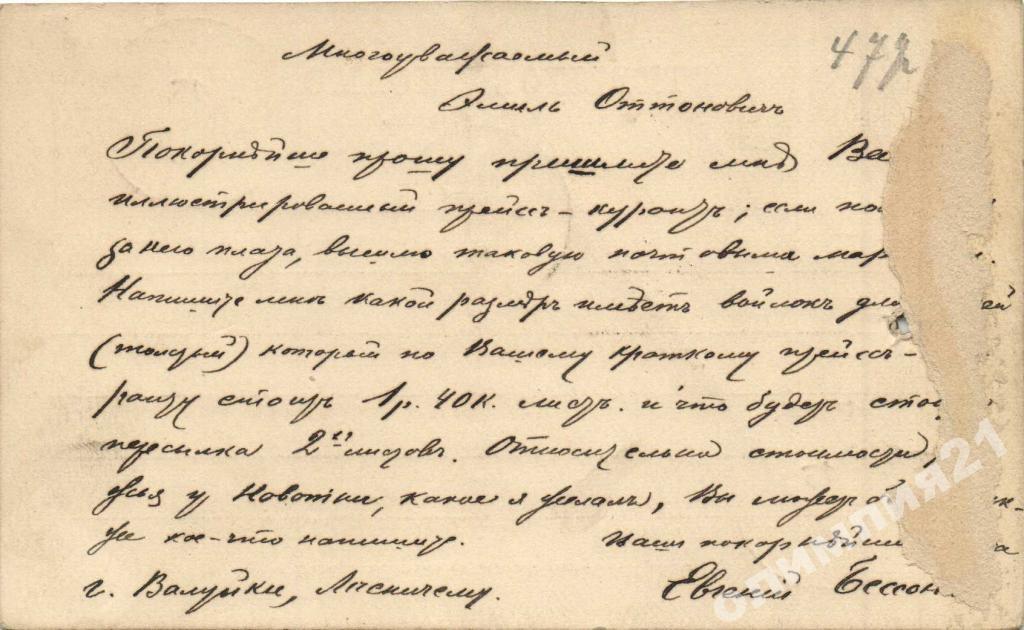 47р
Многоуважаемый
Эмиль Оттоновичъ
Покорнѣйше прошу пришлите мнѣ Ва
иллюстрированный прейсъ-курантъ; если на
за него плата, вышлю таковую почтовыми мар
Напишите мнѣ какой размѣръ имѣетъ войлокъ для ей
(толстый) который по Вашему краткому прейсъ-
ранту стоитъ 1р. 40к. листъ. и что будетъ сто
пересылка 2хъ листовъ. Относительно стоимости,
у Новотни, какое я желалъ, Вы может
же кое-что напишите. Вашъ покорнѣйш
г. Валуйки, Лѣсничему. Евгеній Бессон
олимпия21